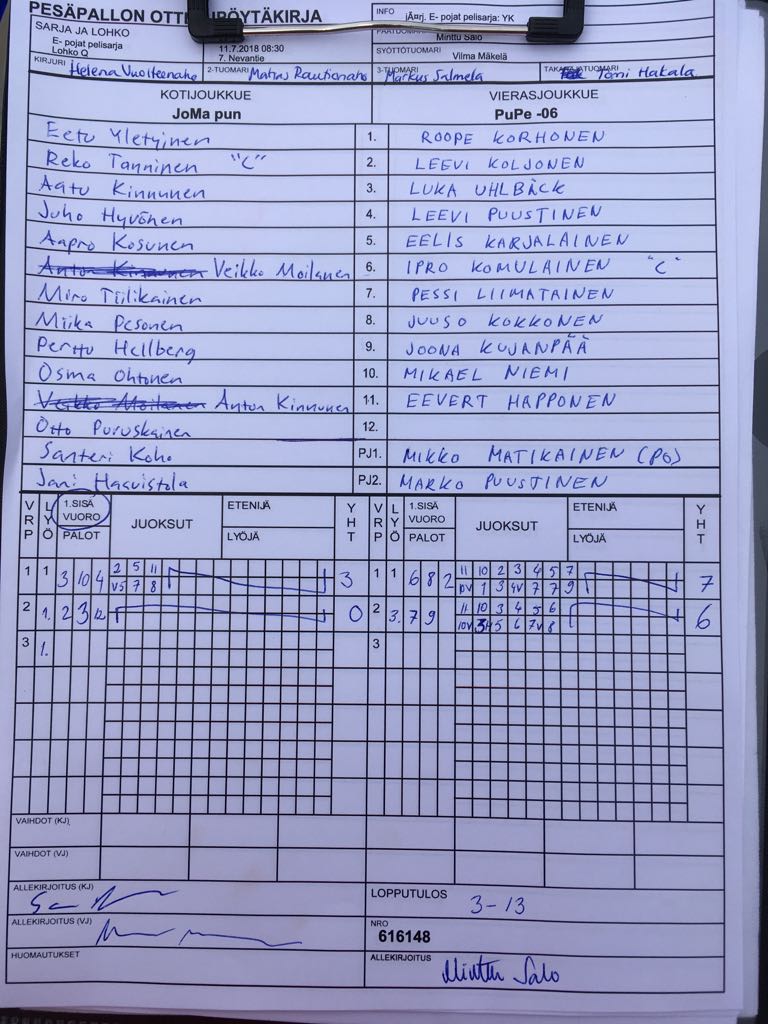 PESÄPALLON OTTELUPÖYTÄKIRJA
INFO
jÄ¤rj. E- pojat pelisarja: YK
SARJA JA LOHKO
E- pojat pelisarja
Lohko Q
11.7.2018 08:30
7. Nevantie
Minttu Salo
SYÖTTÖTUOMARI
Vilma Mäkelä
KIRJURI Helena Vuolteenaho
2-TUOMARI Matias Rautionaho
3-TUOMARI Markus Salmela
TAKARAJATUOMARI Tomi Hakala
KOTIJOUKKUE
JoMa pun
VIERASJOUKKUE
PuPe -06
Eetu Yletyinen 1. ROOPE KORHONEN
Reko Tanninen "C" 2. LEEVI KOLJONEN
Aatu Kinnunen 3. LUKA UHLBÄCK
Juho Hyvönen 4. LEEVI PUUSTINEN
Aapro Kosunen 5. EELIS KARJALAINEN
Anton Kinnunen Veikko Moilanen 6. IPRO KOMULAINEN "C"
Miro Tiilikainen 7. PESSI LIIMATAINEN
Miika Pesonen 8. JUUSO KOKKONEN
Perttu Hellberg 9. JOONA KUJANPÄÄ
Osma Ohtonen 10. MIKAEL NIEMI
Veikko Moilanen Anton Kinnunen 11. EEVERT HAPPONEN
Otto Puruskainen 12.
Santeri Koho PJ1. MIKKO MATIKAINEN (PO)
Jani Hasuistola PJ2. MARKO PUUSTINEN
VRP LYÖ 1.SISÄ VUORO PALOT JUOKSUT ETENIJÄ LYÖJÄ YHT VRP LYÖ 1.SISÄ VUORO PALOT JUOKSUT ETENIJÄ LYÖJÄ YHT
1 1 3 10 4 2 5 11 3 1 1 6 8 2 11 10 2 3 4 5 7 7
V5 7 8 10V 1 3 4V 7 7 9
2 1. 2 3 12 0 2 3. 7 9 11 10 3 4 5 6 6
10V 3 4 5 6 7V 8
3 1. 3
VAIHDOT (KJ)
VAIHDOT (VJ)
ALLEKIRJOITUS (KJ)
LOPPUTULOS 3-13
ALLEKIRJOITUS (VJ)
NRO
616148
HUOMAUTUKSET
ALLEKIRJOITUS Minttu Salo